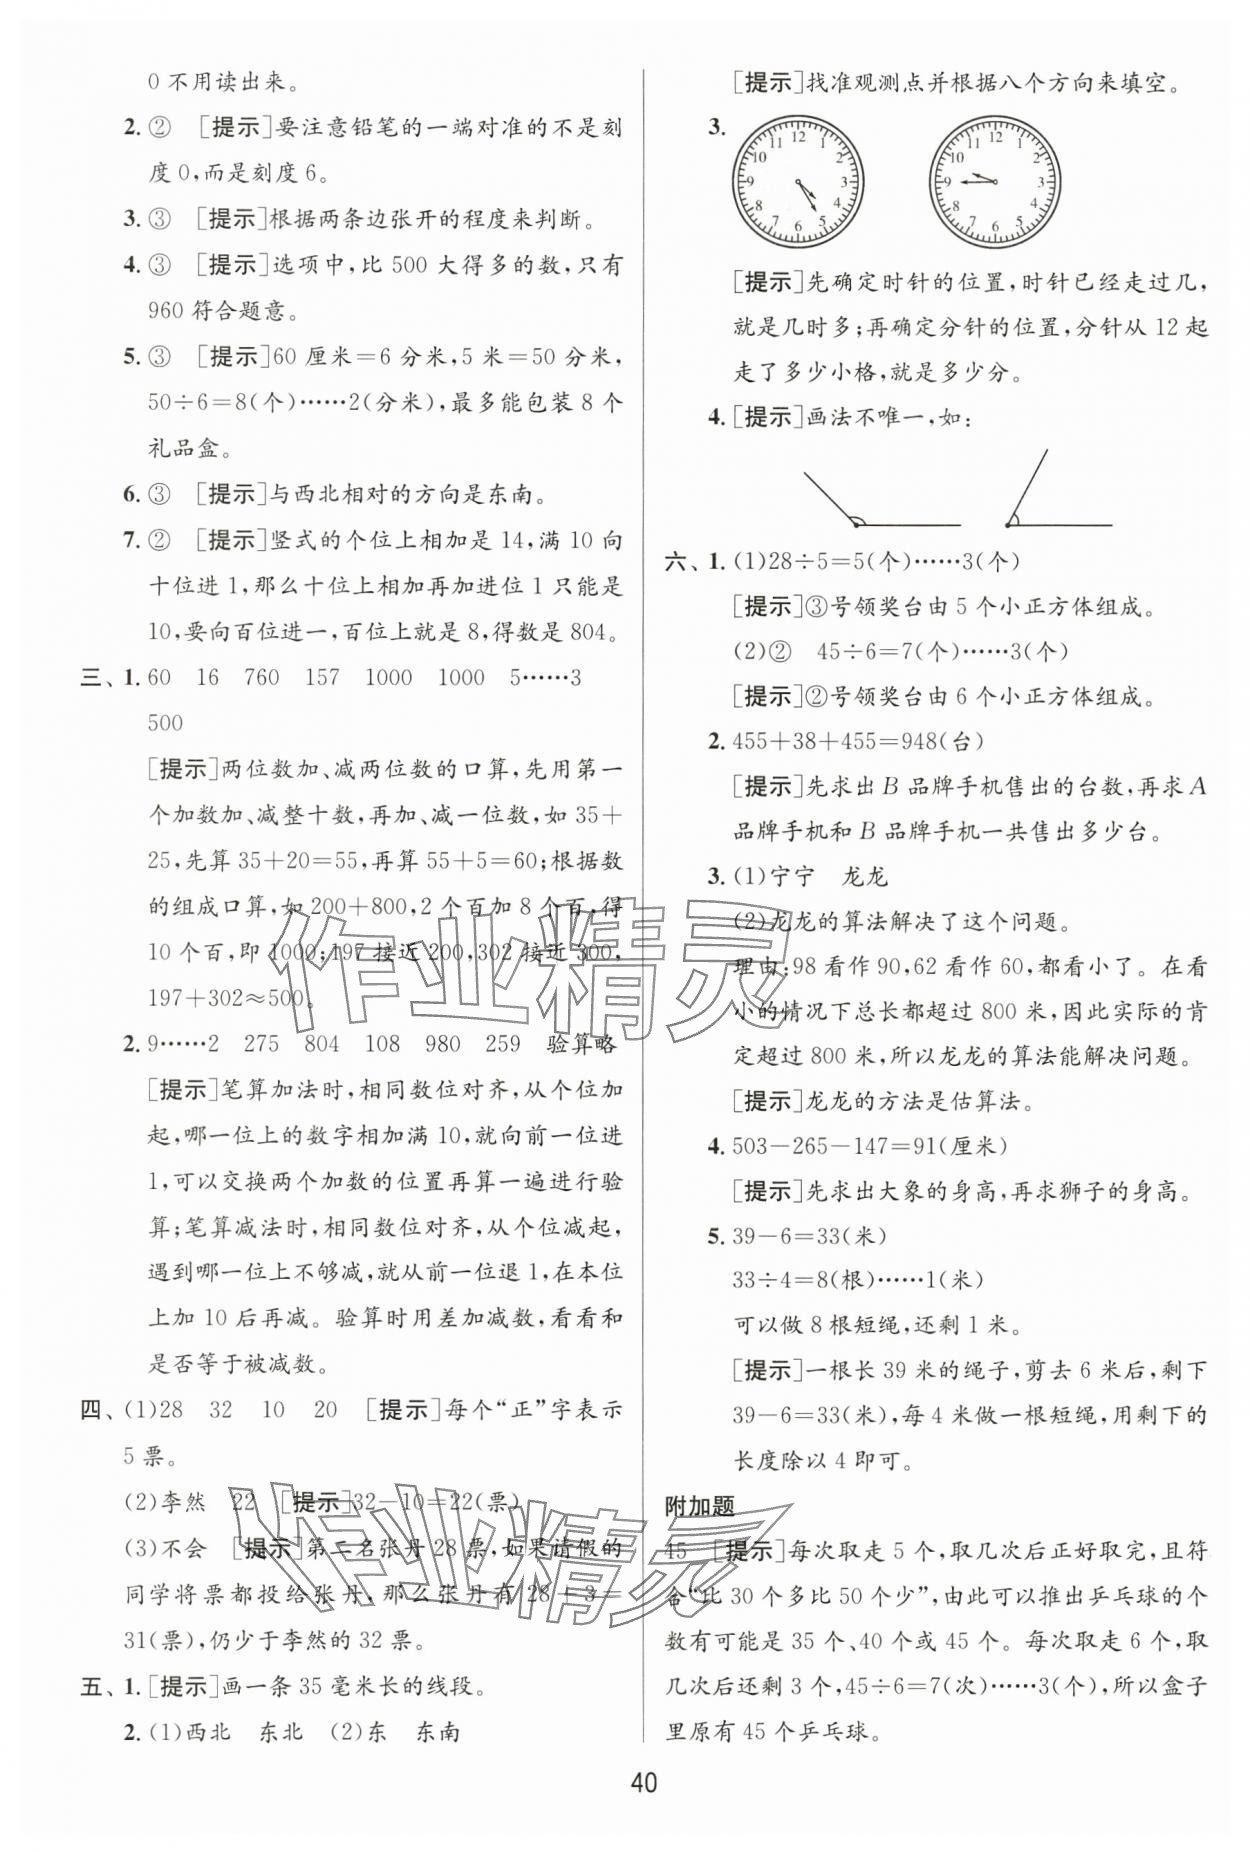 0 不用读出来。
2. ② [提示]要注意铅笔的一端对准的不是刻
度 0,而是刻度 6。
3. ③ [提示]根据两条边张开的程度来判断。
4. ③ [提示]选项中,比 500 大得多的数,只有
960 符合题意。
5. ③ [提示]60 厘米=6 分米,5 米=50 分米,
50÷6=8(个)……2(分米),最多能包装 8 个
礼品盒。
6. ③ [提示]与西北相对的方向是东南。
7. ② [提示]竖式的个位上相加是 14,满 10 向
十位进 1,那么十位上相加再加进位 1 只能是
10,要向百位进一,百位上就是 8,得数是 804。
三、1. 60 16 760 157 1000 1000 5……3
500
[提示]两位数加、减两位数的口算,先用第一
个加数加、减整十数,再加、减一位数,如 35+
25,先算 35+20=55,再算 55+5=60;根据数
的组成口算,如 200+800,2 个百加 8 个百,得
10 个百,即 1000;197 接近 200,302 接近 300,
197+302≈500。
2. 9……2 275 804 108 980 259 验算略
[提示]笔算加法时,相同数位对齐,从个位加
起,哪一位上的数字相加满 10,就向前一位进
1,可以交换两个加数的位置再算一遍进行验
算;笔算减法时,相同数位对齐,从个位减起,
遇到哪一位上不够减,就从前一位退 1,在本位
上加 10 后再减。验算时用差加减数,看看和
是否等于被减数。
四、(1)28 32 10 20 [提示]每个“正”字表示
5 票。
(2)李然 22 [提示]32-10=22(票)
(3)不会 [提示]第二名张丹 28 票,如果请假的
同学将票都投给张丹,那么张丹有 28+3=
31(票),仍少于李然的 32 票。
五、1. [提示]画一条 35 毫米长的线段。
2. (1)西北 东北 (2)东 东南
[提示]找准观测点并根据八个方向来填空。
3.
12 1 2 3 4 5 6 7 8 9 10 11
12 1 2 3 4 5 6 7 8 9 10 11
[提示]先确定时针的位置,时针已经走过几,
就是几时多;再确定分针的位置,分针从 12 起
走了多少小格,就是多少分。
4. [提示]画法不唯一,如:
六、1. (1)28÷5=5(个)……3(个)
[提示]③号领奖台由 5 个小正方体组成。
(2)② 45÷6=7(个)……3(个)
[提示]②号领奖台由 6 个小正方体组成。
2. 455+38+455=948(台)
[提示]先求出 B 品牌手机售出的台数,再求 A
品牌手机和 B 品牌手机一共售出多少台。
3. (1)宁宁 龙龙
(2)龙龙的算法解决了这个问题。
理由:98 看作 90,62 看作 60,都看小了。在看
小的情况下总长都超过 800 米,因此实际的肯
定超过 800 米,所以龙龙的算法能解决问题。
[提示]龙龙的方法是估算法。
4. 503-265-147=91(厘米)
[提示]先求出大象的身高,再求狮子的身高。
5. 39-6=33(米)
33÷4=8(根)……1(米)
可以做 8 根短绳,还剩 1 米。
[提示]一根长 39 米的绳子,剪去 6 米后,剩下
39-6=33(米),每 4 米做一根短绳,用剩下的
长度除以 4 即可。
附加题
45 [提示]每次取走 5 个,取几次后正好取完,且符
合“比 30 个多比 50 个少”,由此可以推出乒乓球的个
数有可能是 35 个、40 个或 45 个。每次取走 6 个,取
几次后还剩 3 个,45÷6=7(次)……3(个),所以盒子
里原有 45 个乒乓球。
40
作业精灵
作业精灵